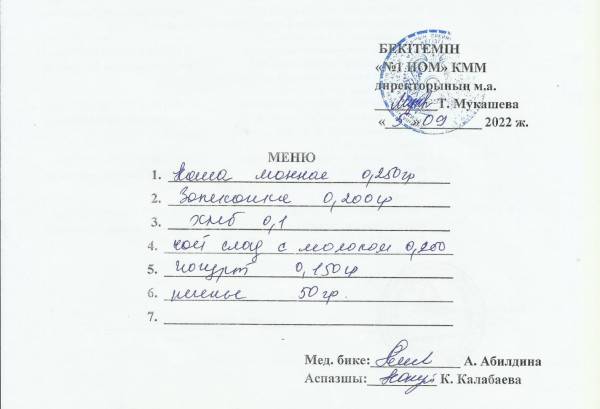 БЕКІТЕМІН
«№1 НОМ» КММ
директорының м.а.
Т. Мукашева
«5» 09 2022 ж.
МЕНЮ
1. Каша манная 0,250гр
2. Запеканка 0,200гр
3. хлеб 0,1
4. чай слад с молоком 0,200
5. йогурт 0,150гр
6. печенье 50гр.
7.
Мед. бике: А. Абилдина
Аспазшы: К. Калабаева